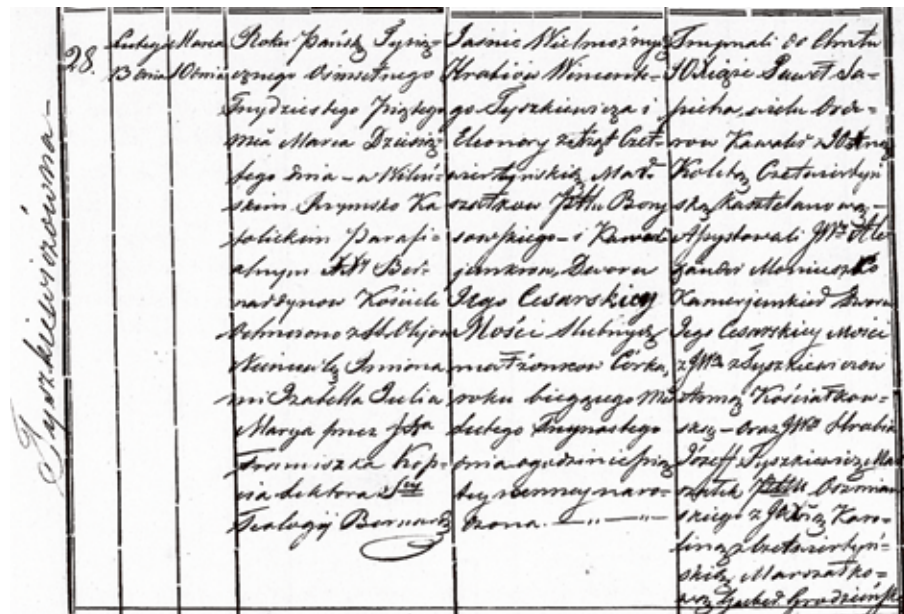 Tyszkiewiczówna
28.
Lutego
13 dnia
Marca
10 dnia
Roku Pańsk Tysią
cznego Osmsetnego
Trzydziestego Piątego
Mca Marca Dziesią
tego dnia – w Wileń
skim Rzymsko Ka
tolickim Parafi-
alnym Ber-
nardynow Kościele
Ochrzczono z Olejow
Niemowlę Imiona
mi Izabella Julia
Marya przez
Franciszka
Lektora
Teologij Bernard
Jaśnie Wielmożnych
Hrabiow Wincente-
go Tyszkiewicza i
Eleonory z Cżet
wiertyńskich Mar
szałkow Bory
sowskiego – i Kamer
junkrow Dworu
Jego Cesarskiey
Mości Slubnych
małżonkow Córkę,
roku bieżącego
Lutego Trzynastego
dnia o godzinie pią
tey naro-
dzona. — „ —
Trzymali do Chrztu
Xiąże Paweł Sa-
pieha, wielu Orde-
row Kawaler z
Koletą Czetwertyń
ską Kasztelanową –
Assystowali JW. Ale-
xander Moniuszko
Kamerjunkier Dworu
Jego Cesarskiey Mości
z JW. z Tyszkiewiczow
Anną Kościałkow-
ską – oraz JW. Hrabia
Józeff Tyszkiewicz Mar
szałek Oszmiań
skiego z Karo-
liną z Czetwiertyń-
skich Marszałko-
wą